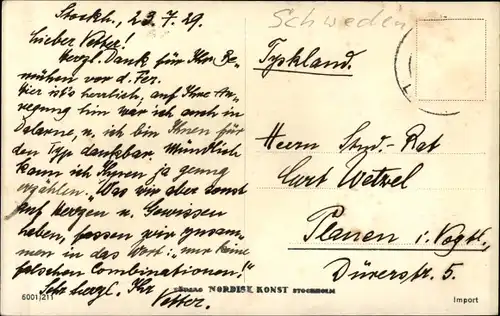 Stockh., 23.7.29.
Lieber Vetter!
Herzl. Dank für Ihre Be-
mühen vor d. Fer.
Hier ist's herrlich, auf Ihre An-
regung hin war ich auch in
Dalarne, u. ich bin Ihnen für
den Typ dankbar. Mündlich
kann ich Ihnen ja genug
erzählen. "Was wir aber sonst
auf Herzen u. Gewissen
haben, fassen wir zusam-
men in das Wort: "nur keine
falschen Combinationen!"
Sehr herzl. Ihr
Vetter.
6001/211
NORDISK KONST STOCKHOLM
Schweden
Tyskland.
Herrn Stud.-Rat
Curt Wetzel
Plauen i. Vogtl.
Dürerstr. 5.
Import